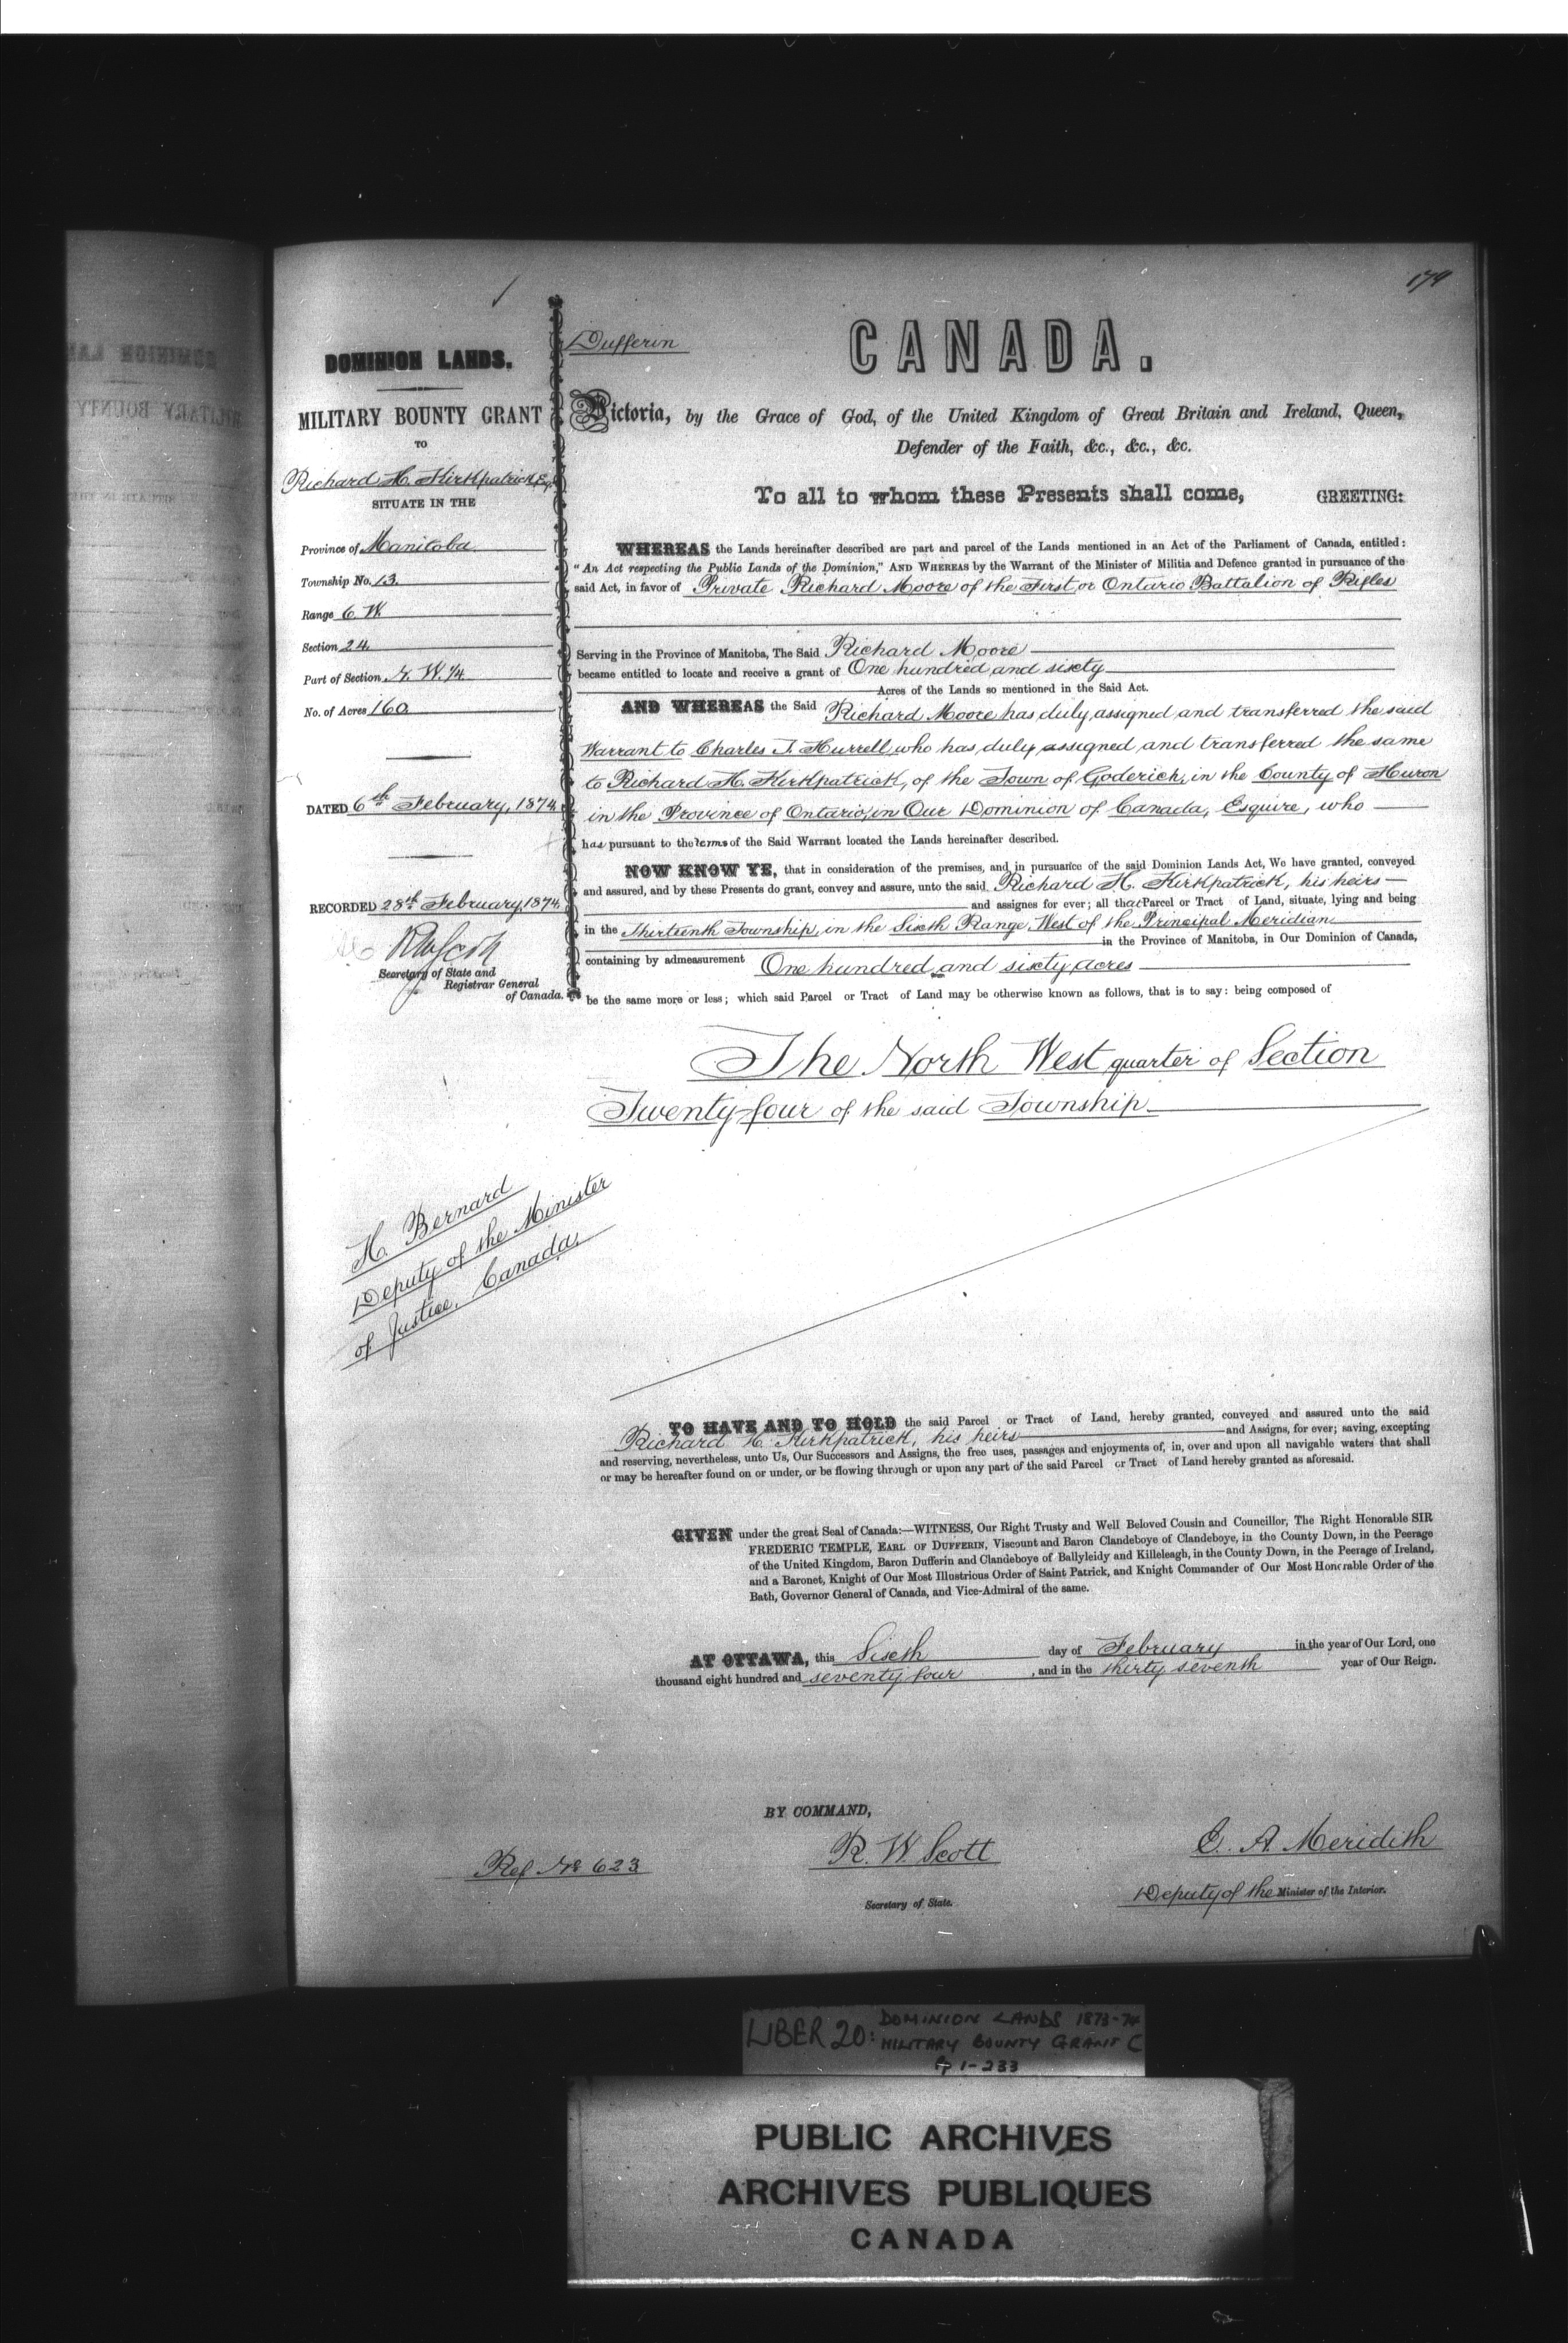 179
DOMINION LANDS.
MILITARY BOUNTY GRANT
TO
Richard H. Kirkpatrick, Esq.
SITUATE IN THE
Province of Manitoba
Township No. 13
Range 6 W.
Section 24
Part of Section N. W. 1/4
No. of Acres 160
DATED 6th February, 1874
RECORDED 28th February, 1874
Secretary of State and
Registrar General
of Canada.
Dufferin
CANADA.
Victoria, by the Grace of God, of the United Kingdom of Great Britain and Ireland, Queen,
Defender of the Faith, &c., &c., &c.
To all to whom these Presents shall come, GREETING:
WHEREAS the Lands hereinafter described are part and parcel of the Lands mentioned in an Act of the Parliament of Canada, entitled:
"An Act respecting the Public Lands of the Dominion," AND WHEREAS by the Warrant of the Minister of Militia and Defence granted in pursuance of the
said Act, in favor of Private Richard Moore of the First or Ontario Battalion of Rifles
Serving in the Province of Manitoba, The Said Richard Moore
became entitled to locate and receive a grant of One hundred and sixty
Acres of the Lands so mentioned in the Said Act.
AND WHEREAS the Said Richard Moore has duly assigned and transferred the said
Warrant to Charles T. Hurrell who has duly assigned and transferred the same
to Richard H. Kirkpatrick, of the Town of Goderich, in the County of Huron
in the Province of Ontario, in Our Dominion of Canada, Esquire, who
has pursuant to the terms of the Said Warrant located the Lands hereinafter described.
NOW KNOW YE, that in consideration of the premises, and in pursuance of the said Dominion Lands Act, We have granted, conveyed
and assured, and by these Presents do grant, convey and assure, unto the said Richard H. Kirkpatrick, his heirs
and assignes for ever; all that Parcel or Tract of Land, situate, lying and being
in the Thirteenth Township, in the Sixth Range, West of the Principal Meridian
in the Province of Manitoba, in Our Dominion of Canada,
containing by admeasurement One hundred and sixty acres
be the same more or less; which said Parcel or Tract of Land may be otherwise known as follows, that is to say: being composed of
The North West quarter of Section
Twenty-four of the said Township
H. Bernard
Deputy of the Minister
of Justice, Canada,
TO HAVE AND TO HOLD the said Parcel or Tract of Land, hereby granted, conveyed and assured unto the said
Richard H. Kirkpatrick, his heirs and Assigns, for ever; saving, excepting
and reserving, nevertheless, unto Us, Our Successors and Assigns, the free uses, passages and enjoyments of, in, over and upon all navigable waters that shall
or may be hereafter found on or under, or be flowing through or upon any part of the said Parcel or Tract of Land hereby granted as aforesaid.
GIVEN under the great Seal of Canada:—WITNESS, Our Right Trusty and Well Beloved Cousin and Councillor, The Right Honorable SIR
FREDERIC TEMPLE, EARL OF DUFFERIN, Viscount and Baron Clandeboye of Clandeboye, in the County Down, in the Peerage
of the United Kingdom, Baron Dufferin and Clandeboye of Ballyleidy and Killeleagh, in the County Down, in the Peerage of Ireland,
and a Baronet, Knight of Our Most Illustrious Order of Saint Patrick, and Knight Commander of Our Most Honorable Order of the
Bath, Governor General of Canada, and Vice-Admiral of the same.
AT OTTAWA, this Sixth day of February in the year of Our Lord, one
thousand eight hundred and seventy four, and in the thirty seventh year of Our Reign.
BY COMMAND,
Ref No 623
R. W. Scott
Secretary of State.
E. A. Meredith
Deputy of the Minister of the Interior.
LIBER 20: DOMINION LANDS 1873-74
MILITARY BOUNTY GRANT C
pp 1-233
PUBLIC ARCHIVES
ARCHIVES PUBLIQUES
CANADA